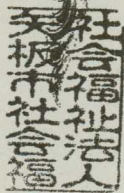 社会福祉法人
矢板市社会福